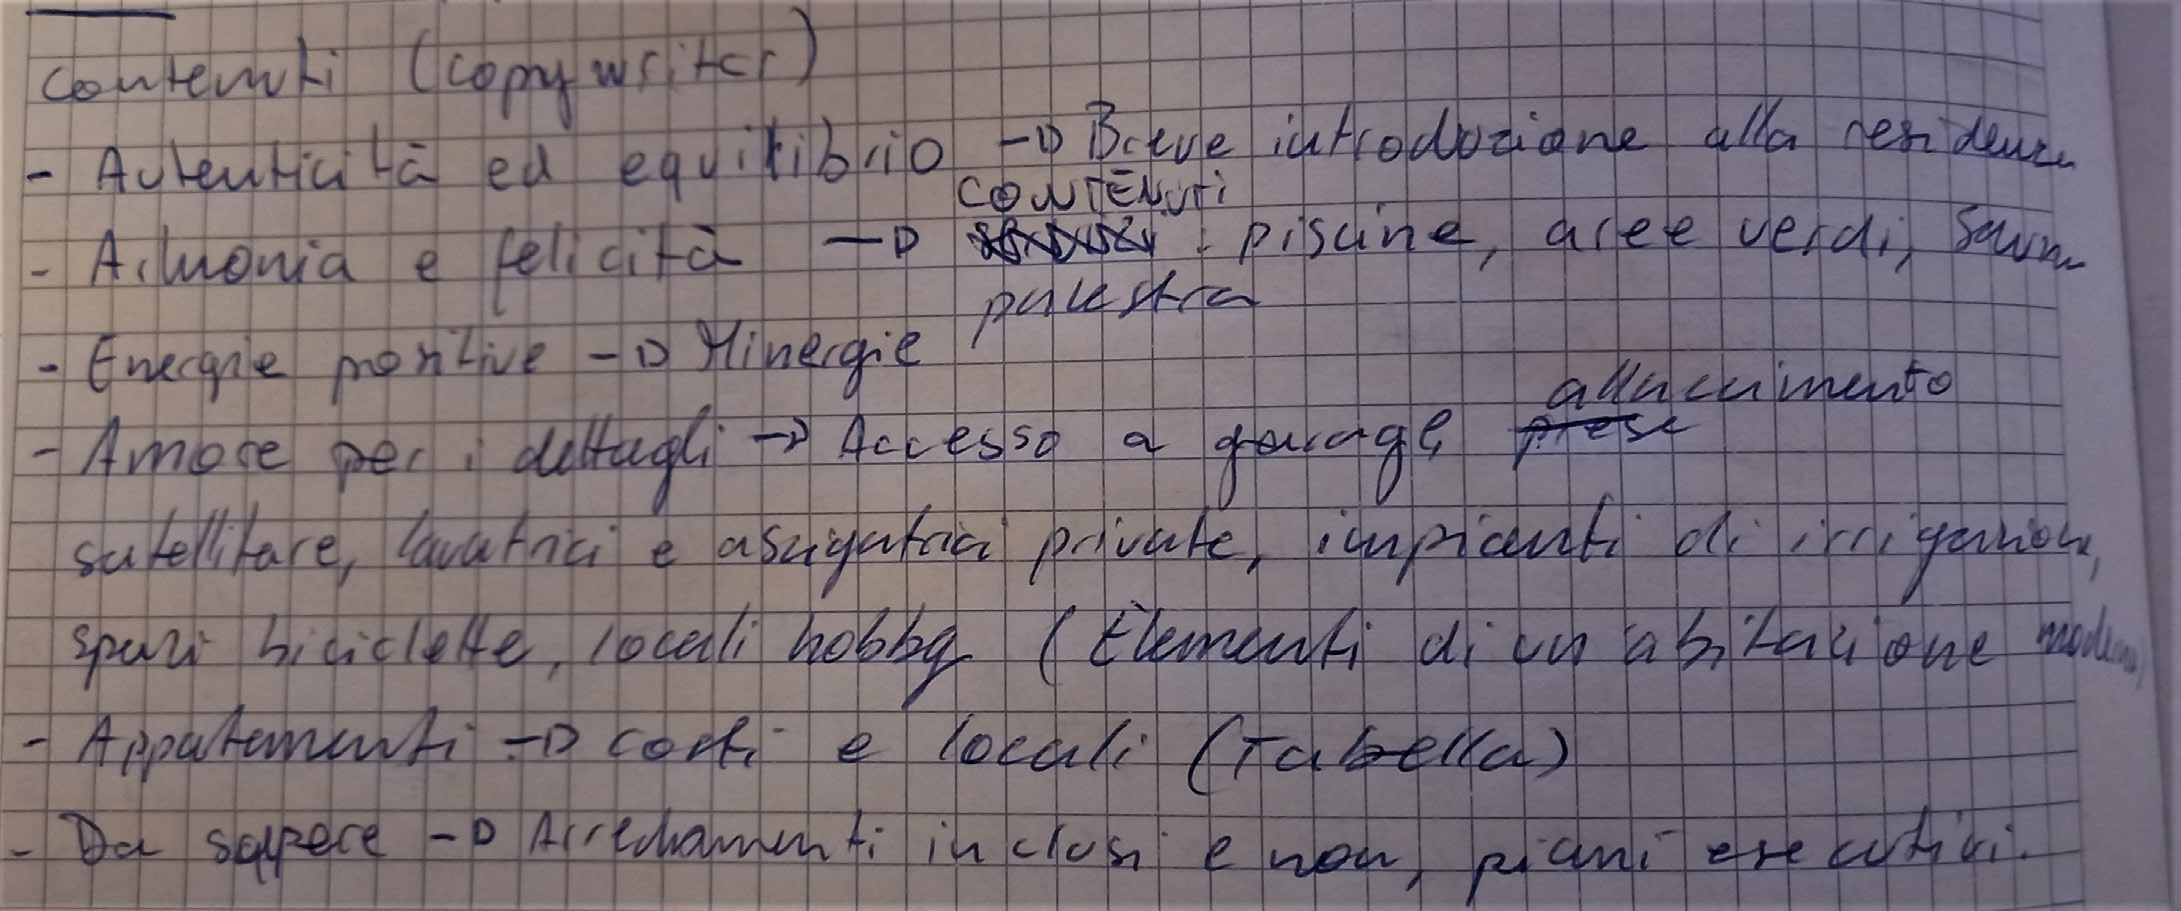 Contenuti (copywriter)
- Autenticità ed equilibrio → Breve introduzione alla residenza
CONTENUTI
- Armonia e felicità → : piscine, aree verdi, sauna
palestra
- Energie positive → Minergie
allacciamento
- Amore per i dettagli → Accesso a garage, prese
satellitare, lavatrici e asciugatrici private, impianti di irrigazione,
spazi biciclette, locali hobby (Elementi di un'abitazione moderna)
- Appatementi → costi e locali (Tabella)
- Da sapere → Arredamenti inclusi e non, piani esecutivi.